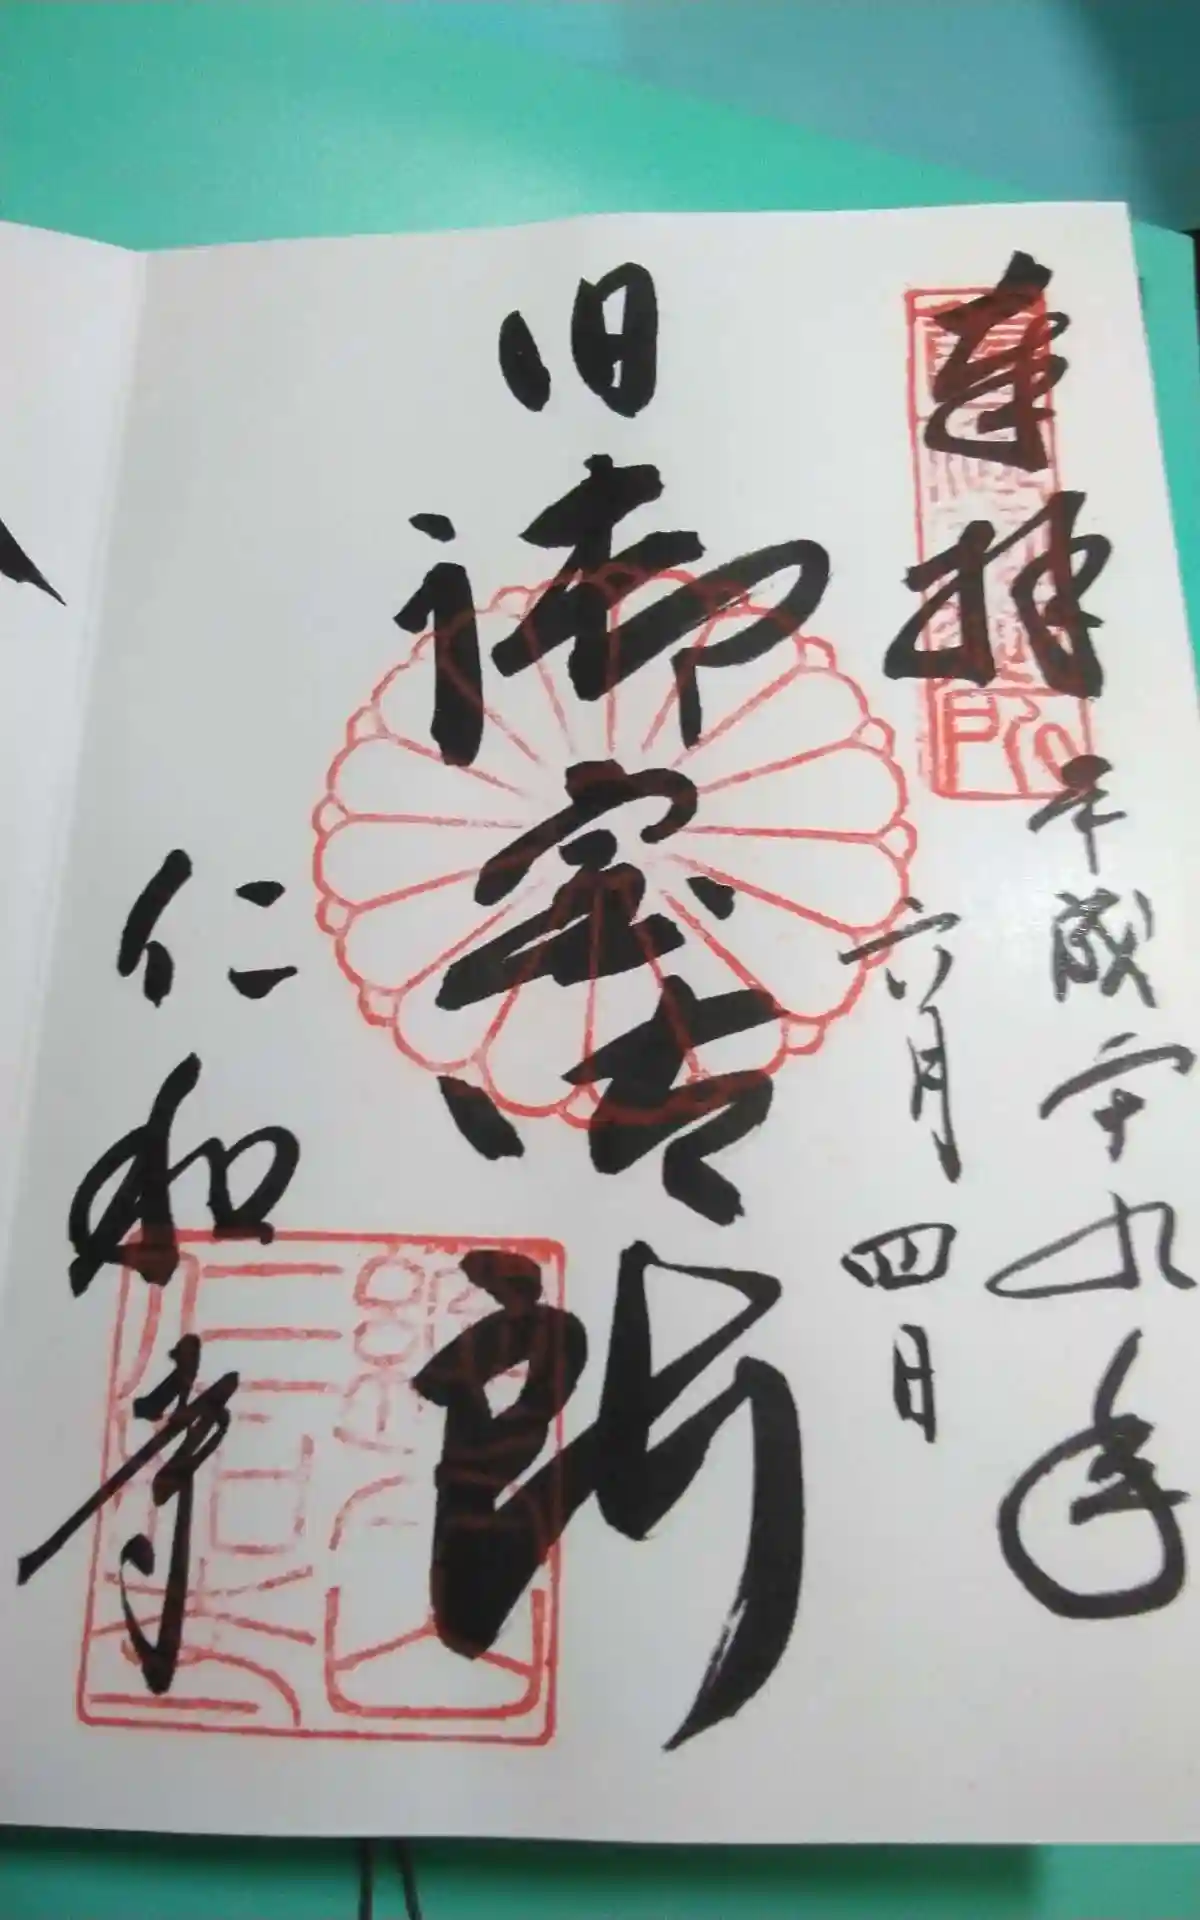 奉拝
平成二十九年
六月四日
旧御室御所
仁和寺